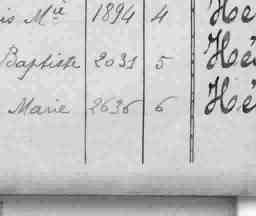 is Mie 1894 4 Hé
Baptiste 2031 5 Hé
Marie 2636 6 Hé